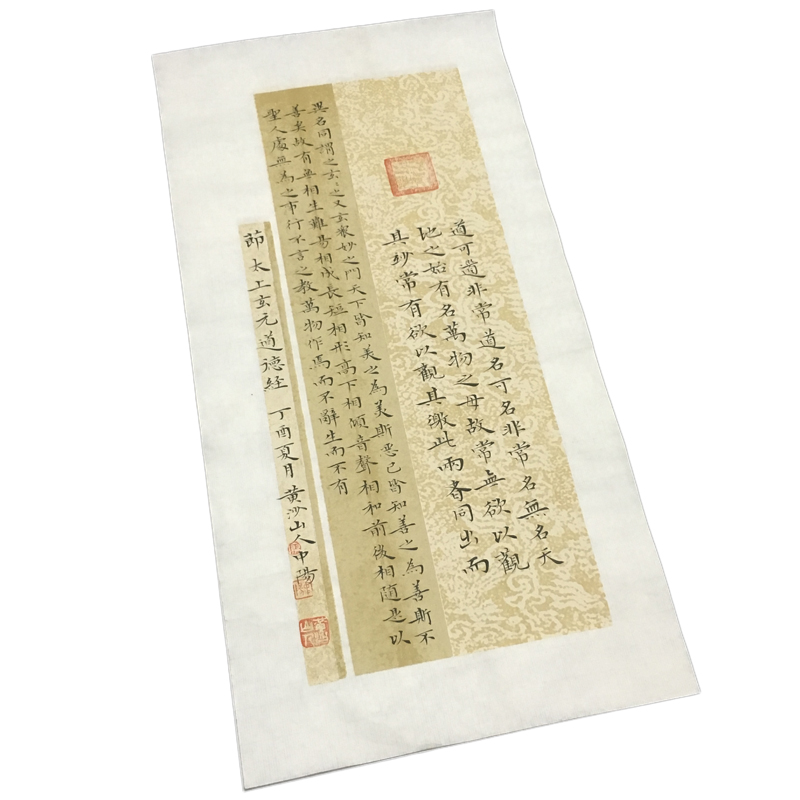 道可道非常道名可名非常名無名天
地之始有名萬物之母故常無欲以觀
其妙常有欲以觀其徼此兩者同出而
異名同謂之玄〻之又玄衆妙之門天下皆知美之為美斯惡已皆知善之為善斯不
善矣故有無相生難易相成長短相形高下相傾音聲相和前後相隨是以
聖人處無為之事行不言之教萬物作焉而不辭生而不有
節太上玄元道德経 丁酉夏月黄沙山人中陽